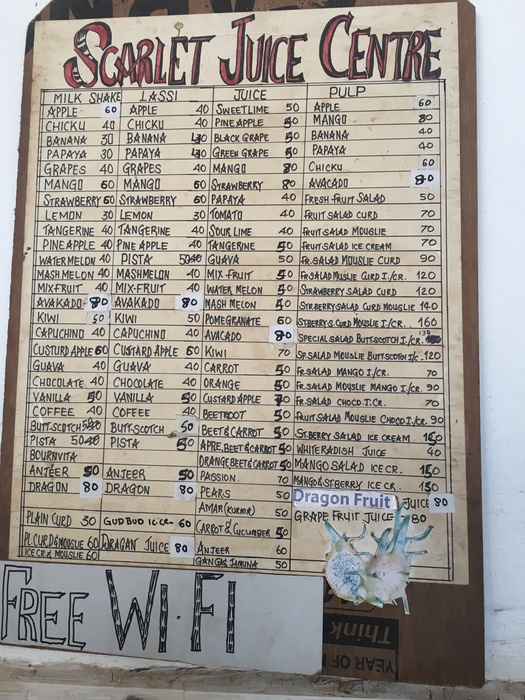 SCARLET JUICE CENTRE
MILK SHAKE LASSI JUICE PULP
APPLE 60 APPLE 40 SWEETLIME 50 APPLE 60
CHICKU 40 CHICKU 40 PINEAPPLE 50 MANGO 80
BANANA 30 BANANA 40 BLACK GRAPE 50 BANANA 40
PAPAYA 30 PAPAYA 40 GREEN GRAPE 50 PAPAYA 40
GRAPES 40 GRAPES 40 MANGO 80 CHICKU 60
MANGO 60 MANGO 60 STRAWBERRY 80 AVACADO 80
STRAWBERRY 60 STRAWBERRY 60 PAPAYA 40 FRESH FRUIT SALAD 50
LEMON 30 LEMON 30 TOMATO 40 FRUIT SALAD CURD 70
TANGERINE 40 TANGERINE 40 SOUR LIME 40 FRUIT SALAD MOUSLIE 70
PINEAPPLE 40 PINE APPLE 40 TANGERINE 50 FRUIT SALAD ICE CREAM 70
WATER MELON 40 PISTA GUAVA 50 FR.SALAD MOUSLIE CURD 90
MASHMELON 40 MASHMELON 40 MIX-FRUIT 50 FR.SALAD MUSLIE CURD I./CR. 120
MIX-FRUIT 40 MIX-FRUIT 40 WATER MELON 50 STRAWBERRY SALAD CURD 120
AVAKADO 80 AVAKADO 80 MASH MELON 50 STRBERRY SALAD CURD MOUSLIE 140
KIWI 50 KIWI 50 POMEGRANATE 60 STBERRY S.CURD MOUSLIE I/CR. 160
CAPUCHINO 40 CAPUCHINO 40 AVACADO 80 SPECIAL SALAD BUTT-SCOTCH I/C. 130
CUSTURD APPLE 60 CUSTARD APPLE 60 KIWI 70 SP.SALAD MOUSLIE BUTT-SCOTCH I/C. 120
GUAVA 40 GUAVA 40 CARROT 50 FR.SALAD MANGO I./CR. 70
CHOCOLATE 40 CHOCOLATE 40 ORANGE 50 FR.SALAD MOUSLIE MANGO I/CR. 90
VANILLA 50 VANILLA 50 CUSTARD APPLE FR.SALAD CHOCO I.CR. 70
COFFEE 40 COFFEE 40 BEETROOT 50 FRUIT SALAD MOUSLIE CHOCO I/CR. 90
BUTT-SCOTCH BUTT-SCOTCH 50 BEET & CARROT 50 ST.BERRY SALAD ICE CREAM
PISTA PISTA 50 APRE, BEET & CARROT 50 WHITE RADISH JUICE 40
BOURNVITA ORANGE BEET & CARROT 50 MANGO SALAD ICE CR. 150
ANJEER 50 ANJEER 50 PASSION 70 MANGO & STBERRY ICE CR. 150
DRAGON 80 DRAGON 80 PEARS 50 Dragon Fruit JUICE 80
AMAR(KURMA) 50 GRAPE FRUIT JUICE 80
PLAIN CURD 30 GUD BUD ICE-CR- 60 CARROT & CUCUMBER 50
PL.CURD & MOUSLIE 60 DRAGAN JUICE 80 ANJEER 60
ICE CR & MOUSLIE 60 GANGA & JAMUNA 50
FREE WI-FI
Think
YEAR OF